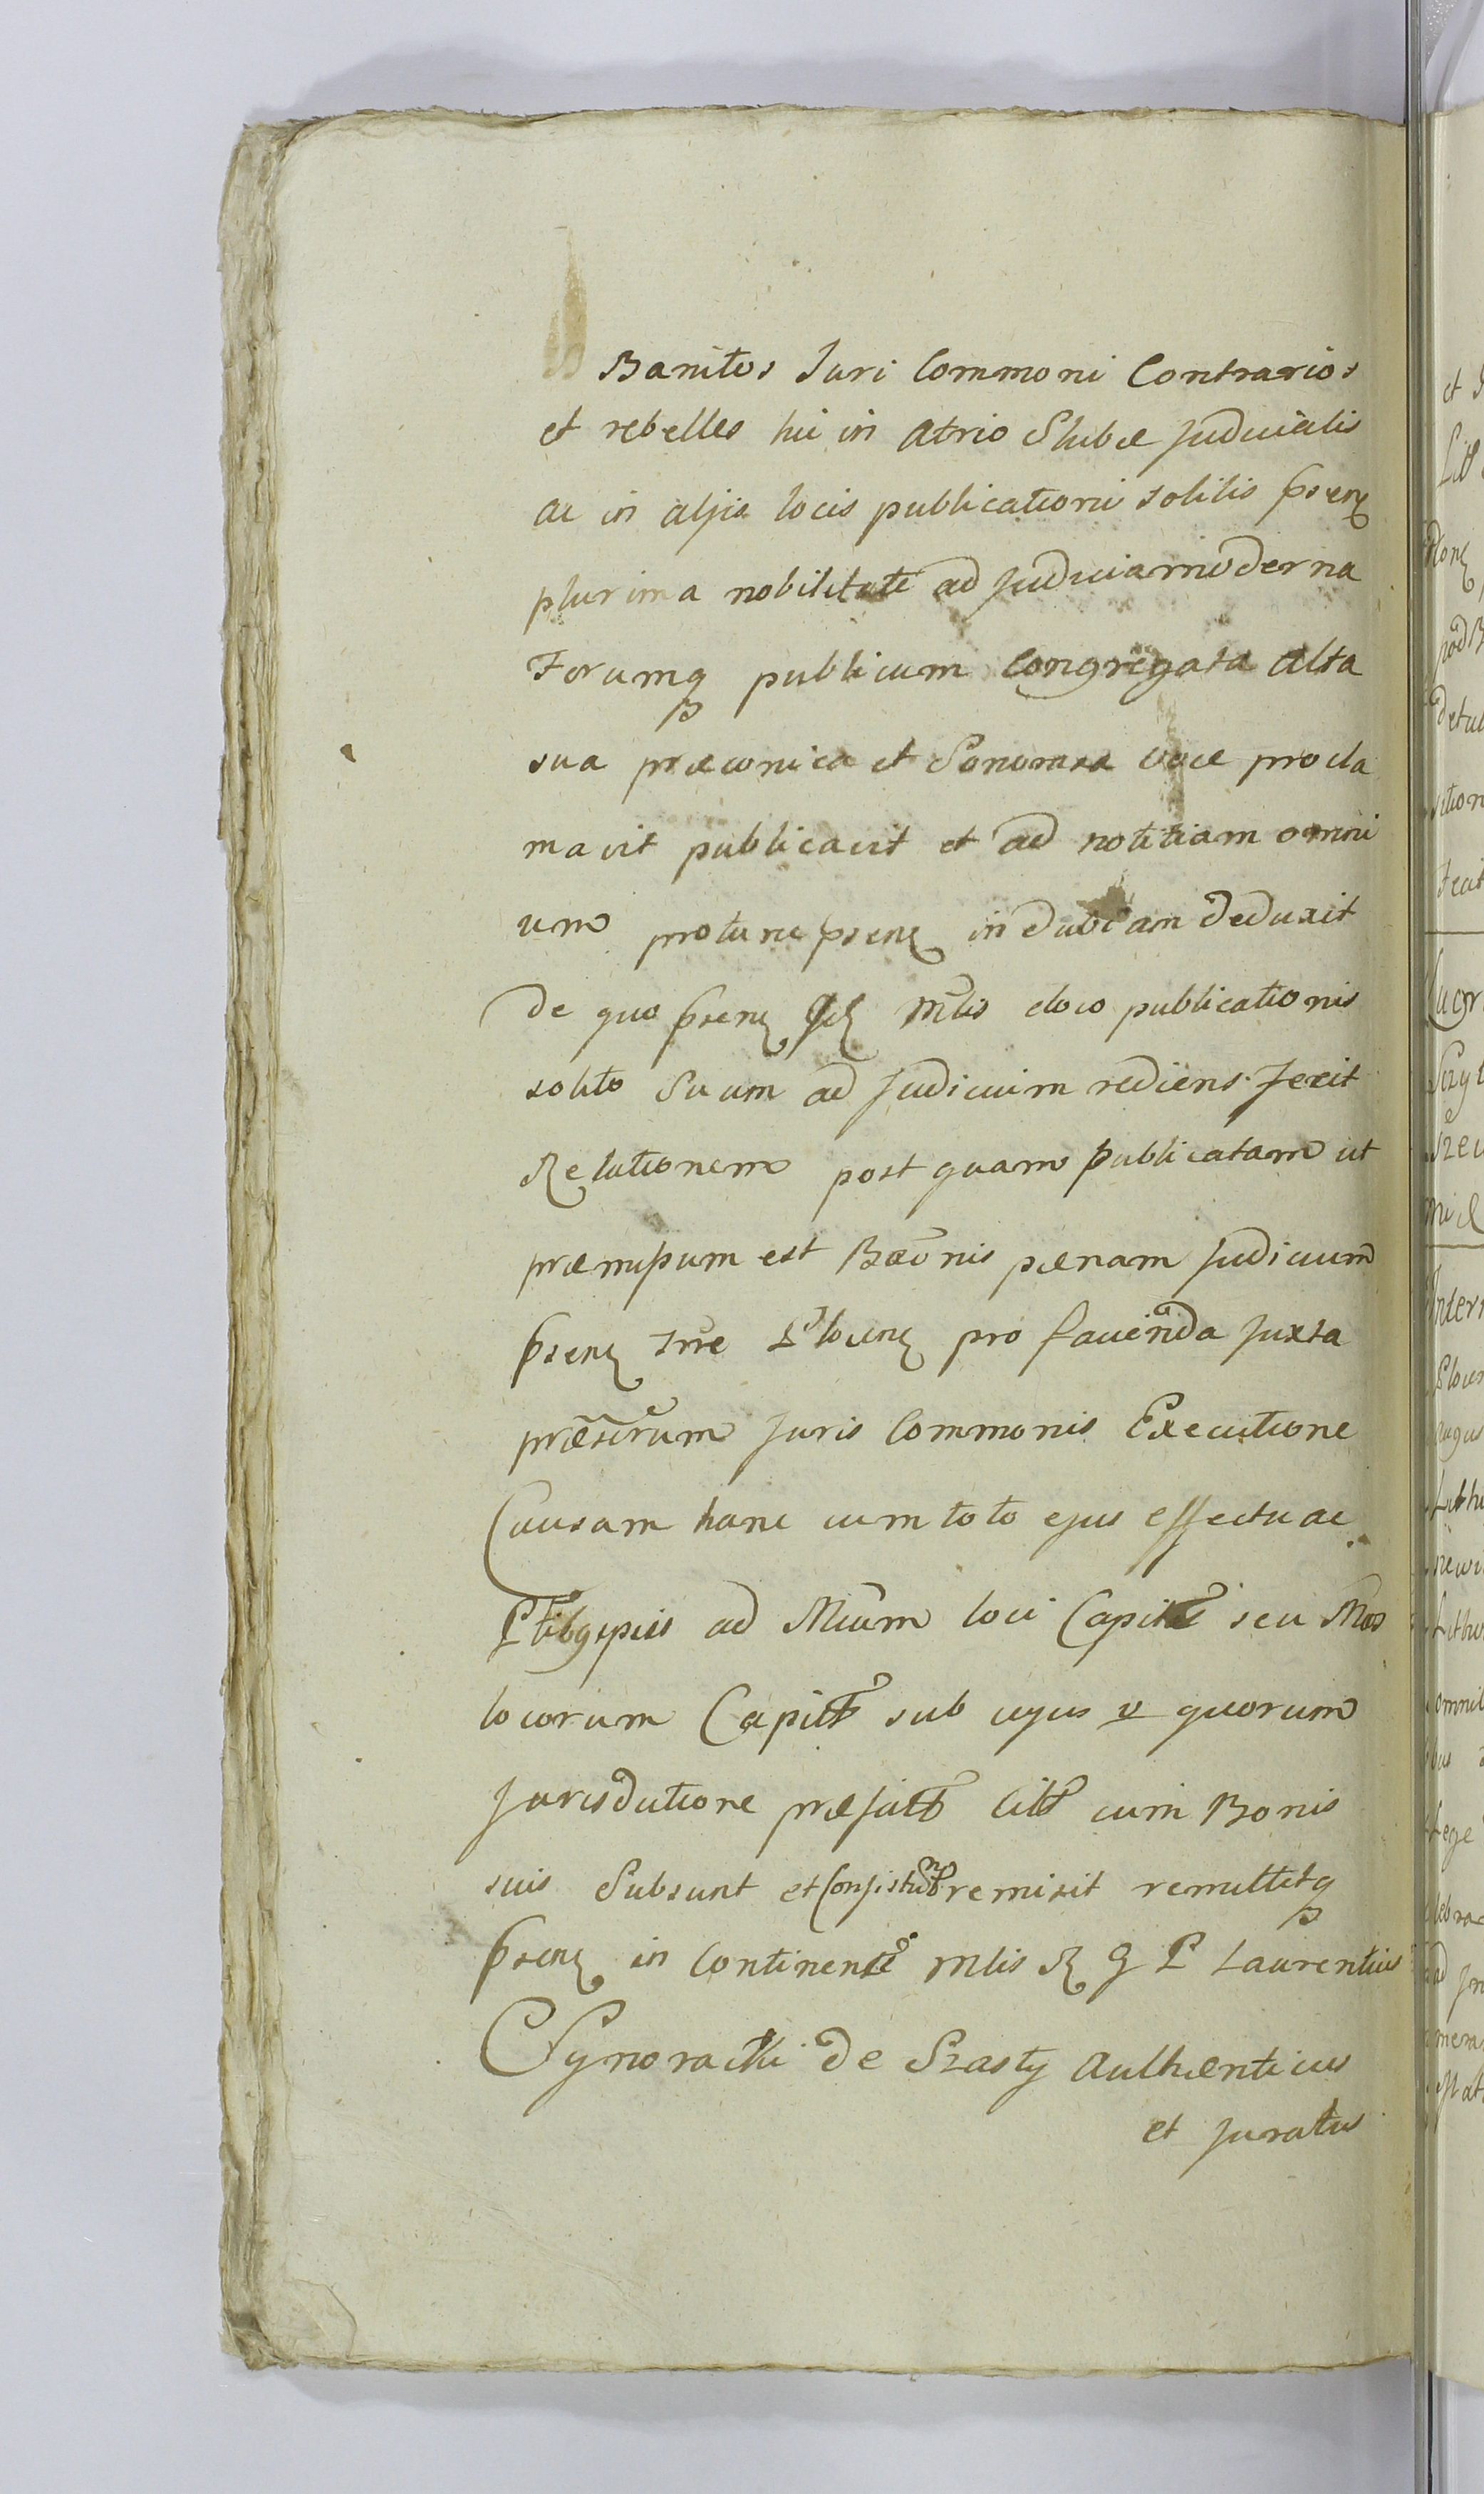 Banitos Juri Commoni Contrarios
et rebelles hic in Atrio Stubæ Judicialis
ac in aljis locis publicationi solitis pñsenę
plurima nobilitate ad Judicia moderna
Forumq publicum Congregata Alta
sua præconica et Sonorosa voce procla
mavit publicavit et ad notitiam omni
um protunc pñsenę indubiam deduxit
De quo pñsenę Mtlis eloco publicationis
solito Suum ad Judicium rediens fecit
Relationem post quam publicatam ut
præmissum est Bañonis pænam Judicium
pñsenę Tñre Plocenę pro facienda Juxta
præscrũm Juris Commonis Executione
Causam hanc cum toto ejus effectu ac
ad loci Capitł seu
locorum Capitł sub cujus v quorum
Jurisdictione præfatł Citł cum Bonis
suis Subsunt et Consistunt remisit remittitq
pñsenę in Continenti Mtlis R G P Laurentius
de Szasty Authenticus
et Juratus